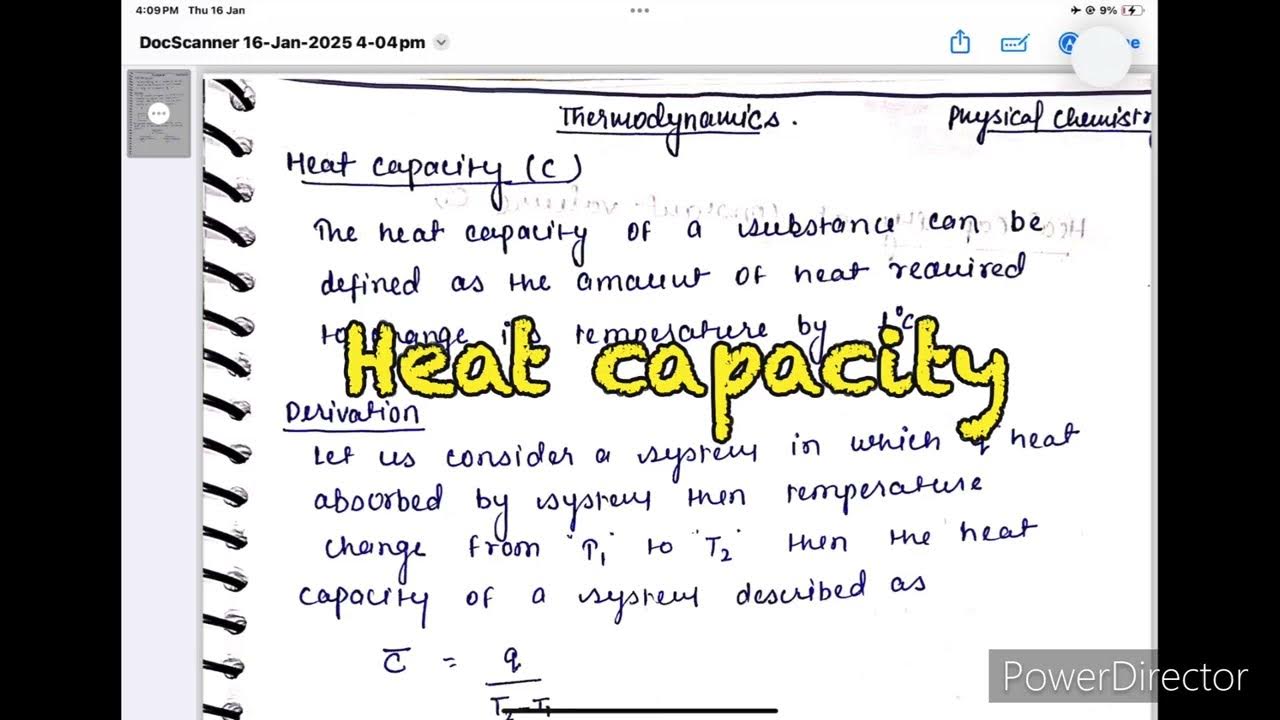 4:09 PM Thu 16 Jan
9%
DocScanner 16-Jan-2025 4-04 pm
Thermodynamics.
Physical Chemistr
Heat capacity (C)
The heat capacity of a substance can be
defined as the amount of heat required
to change its temperature by 1°C
Heat capacity
Derivation
Let us consider a system in which q heat
absorbed by system then temperature
change from "T₁" to "T₂" then the heat
capacity of a system described as
C̅ = q
T₂-T₁
PowerDirector